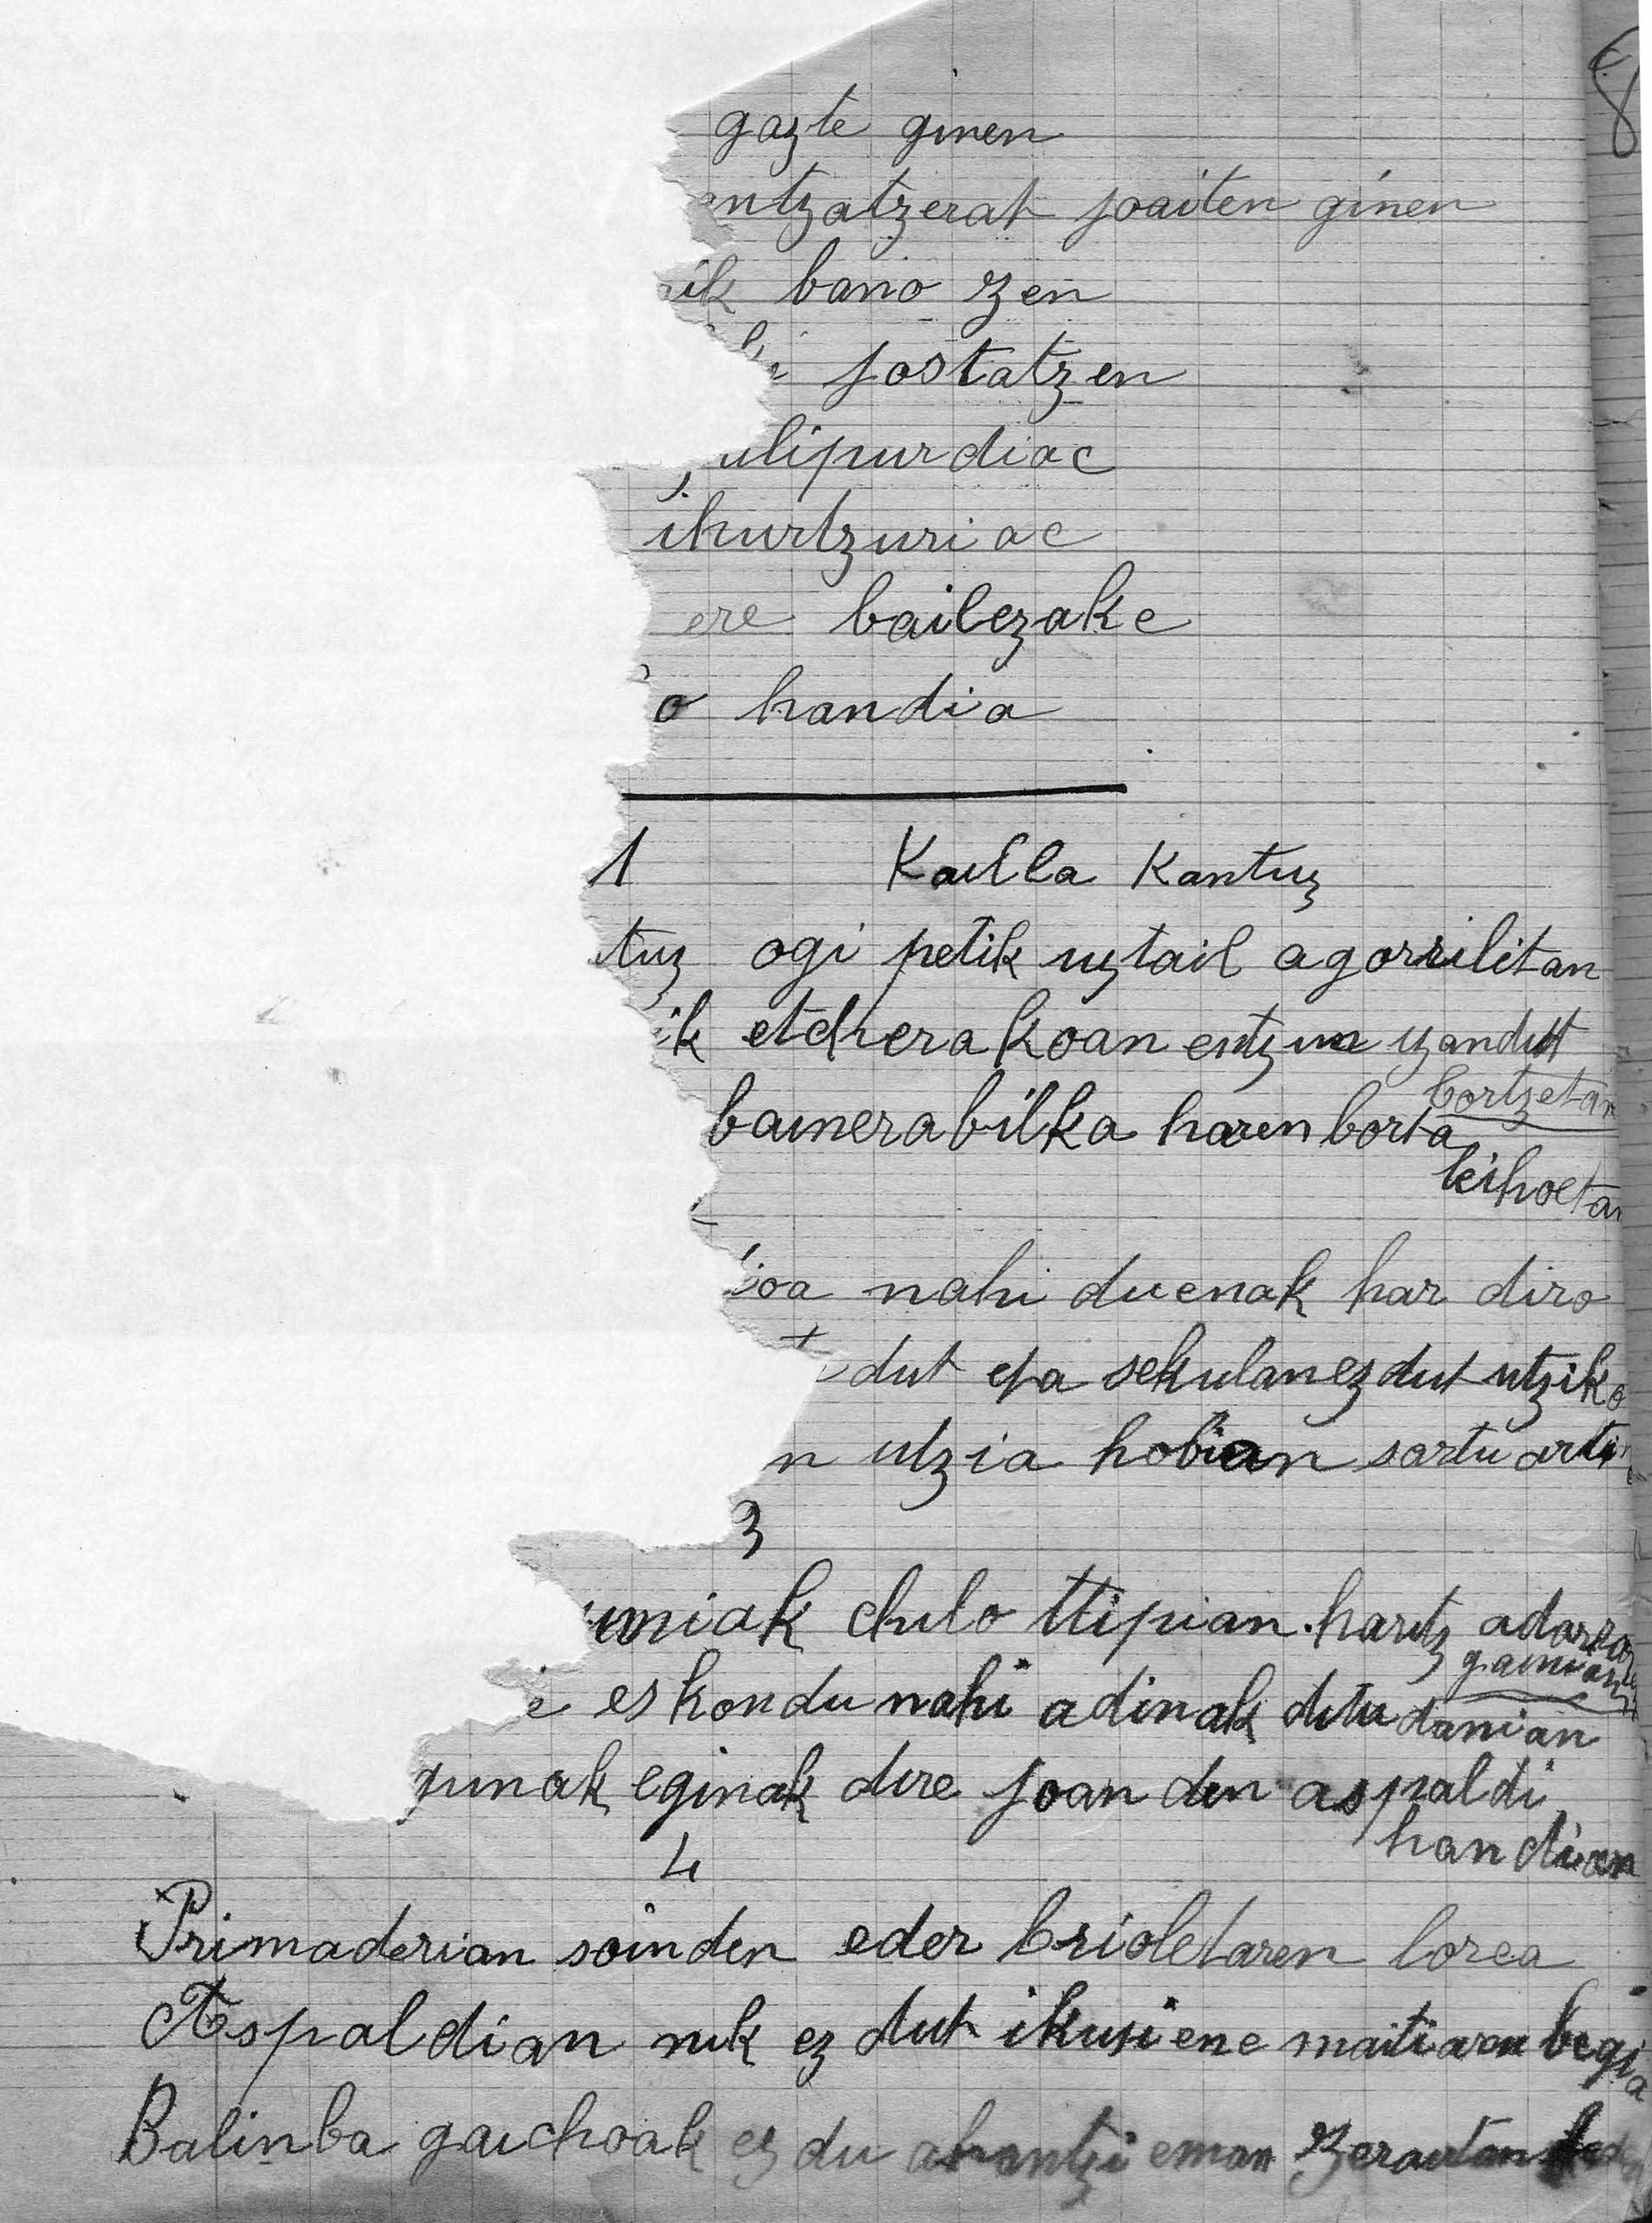 8
gazte ginen
ntzatzerat joaiten ginen
ik baino zen
jostatzen
ulipurdiac
ihurtzuriac
ere bailezake
o handia
1 Kailla Kantuz
tuz ogi petik uztail agorrilitan
ik etcherakoan entzun izandut
bortzetan
bainerabilka haren borta
leihoetan
ioa nahi duenak har diro
dut eta sekulan ez dut utziko
n utzia hobian sartu artino
3
umiak chilo ttipian haritz adarraren
gainian
eskondu nahi adinak ditu danian
gunak eginak dire joan den aspaldi
handian
4
Primaderian soinden eder brioletaren lorea
Aspaldian nik ez dut ikusi ene maitiaren begia
Balinba gaichoak ez du ahantzi eman zerautan